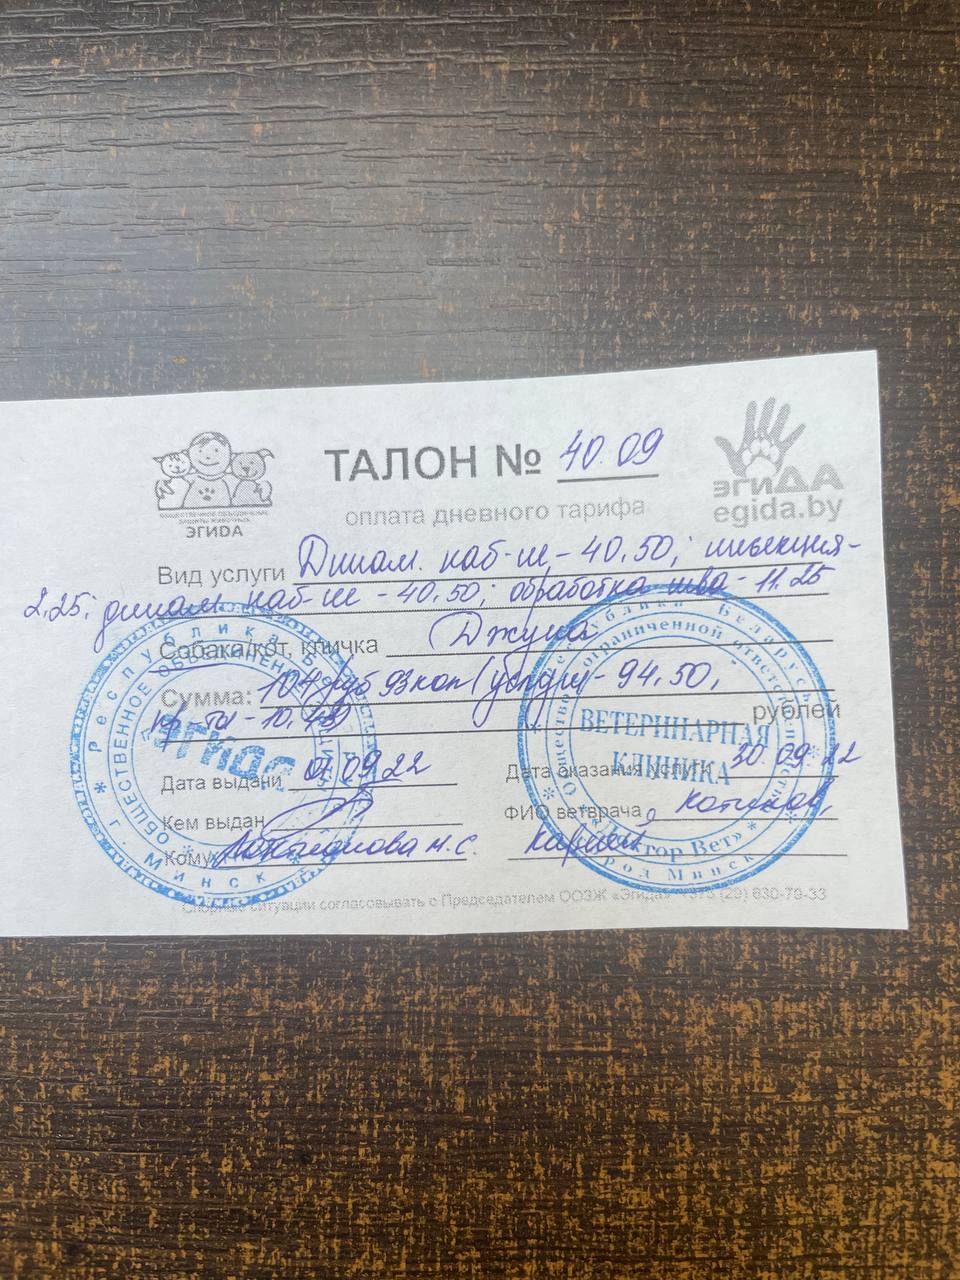 ТАЛОН № 40.09
оплата дневного тарифа
ОБЩЕСТВЕННОЕ ОБЪЕДИНЕНИЕ
ЗАЩИТЫ ЖИВОТНЫХ
ЭГИДА
эгиДА
egida.by
Вид услуги Динам. наб-ие - 40.50; инъекция -
2.25; динам. наб-ие - 40.50; обработка шва - 11.25
Собака/кот, кличка
Сумма: 104 руб 93 коп (услуги - 94.50,
пр-ты - 10.43) рублей
Дата выдачи 01.09.22
Дата оказания услуги 30.09.22
Кем выдан
ФИО ветврача
Кому
Спорные ситуации согласовывать с Председателем ООЗЖ «Эгида» +375 (29) 630-79-33
Республика Беларусь
ОБЩЕСТВЕННОЕ ОБЪЕДИНЕНИЕ
г. Минск
Республика Беларусь
Общество с ограниченной ответственностью
ВЕТЕРИНАРНАЯ
КЛИНИКА
«Доктор Вет»
город Минск